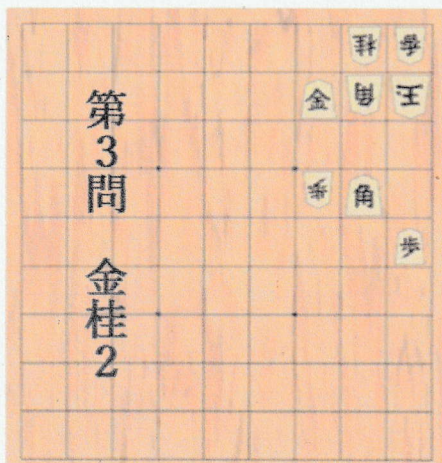 第3問 金桂2
桂 香
金 角 王
歩 角
歩